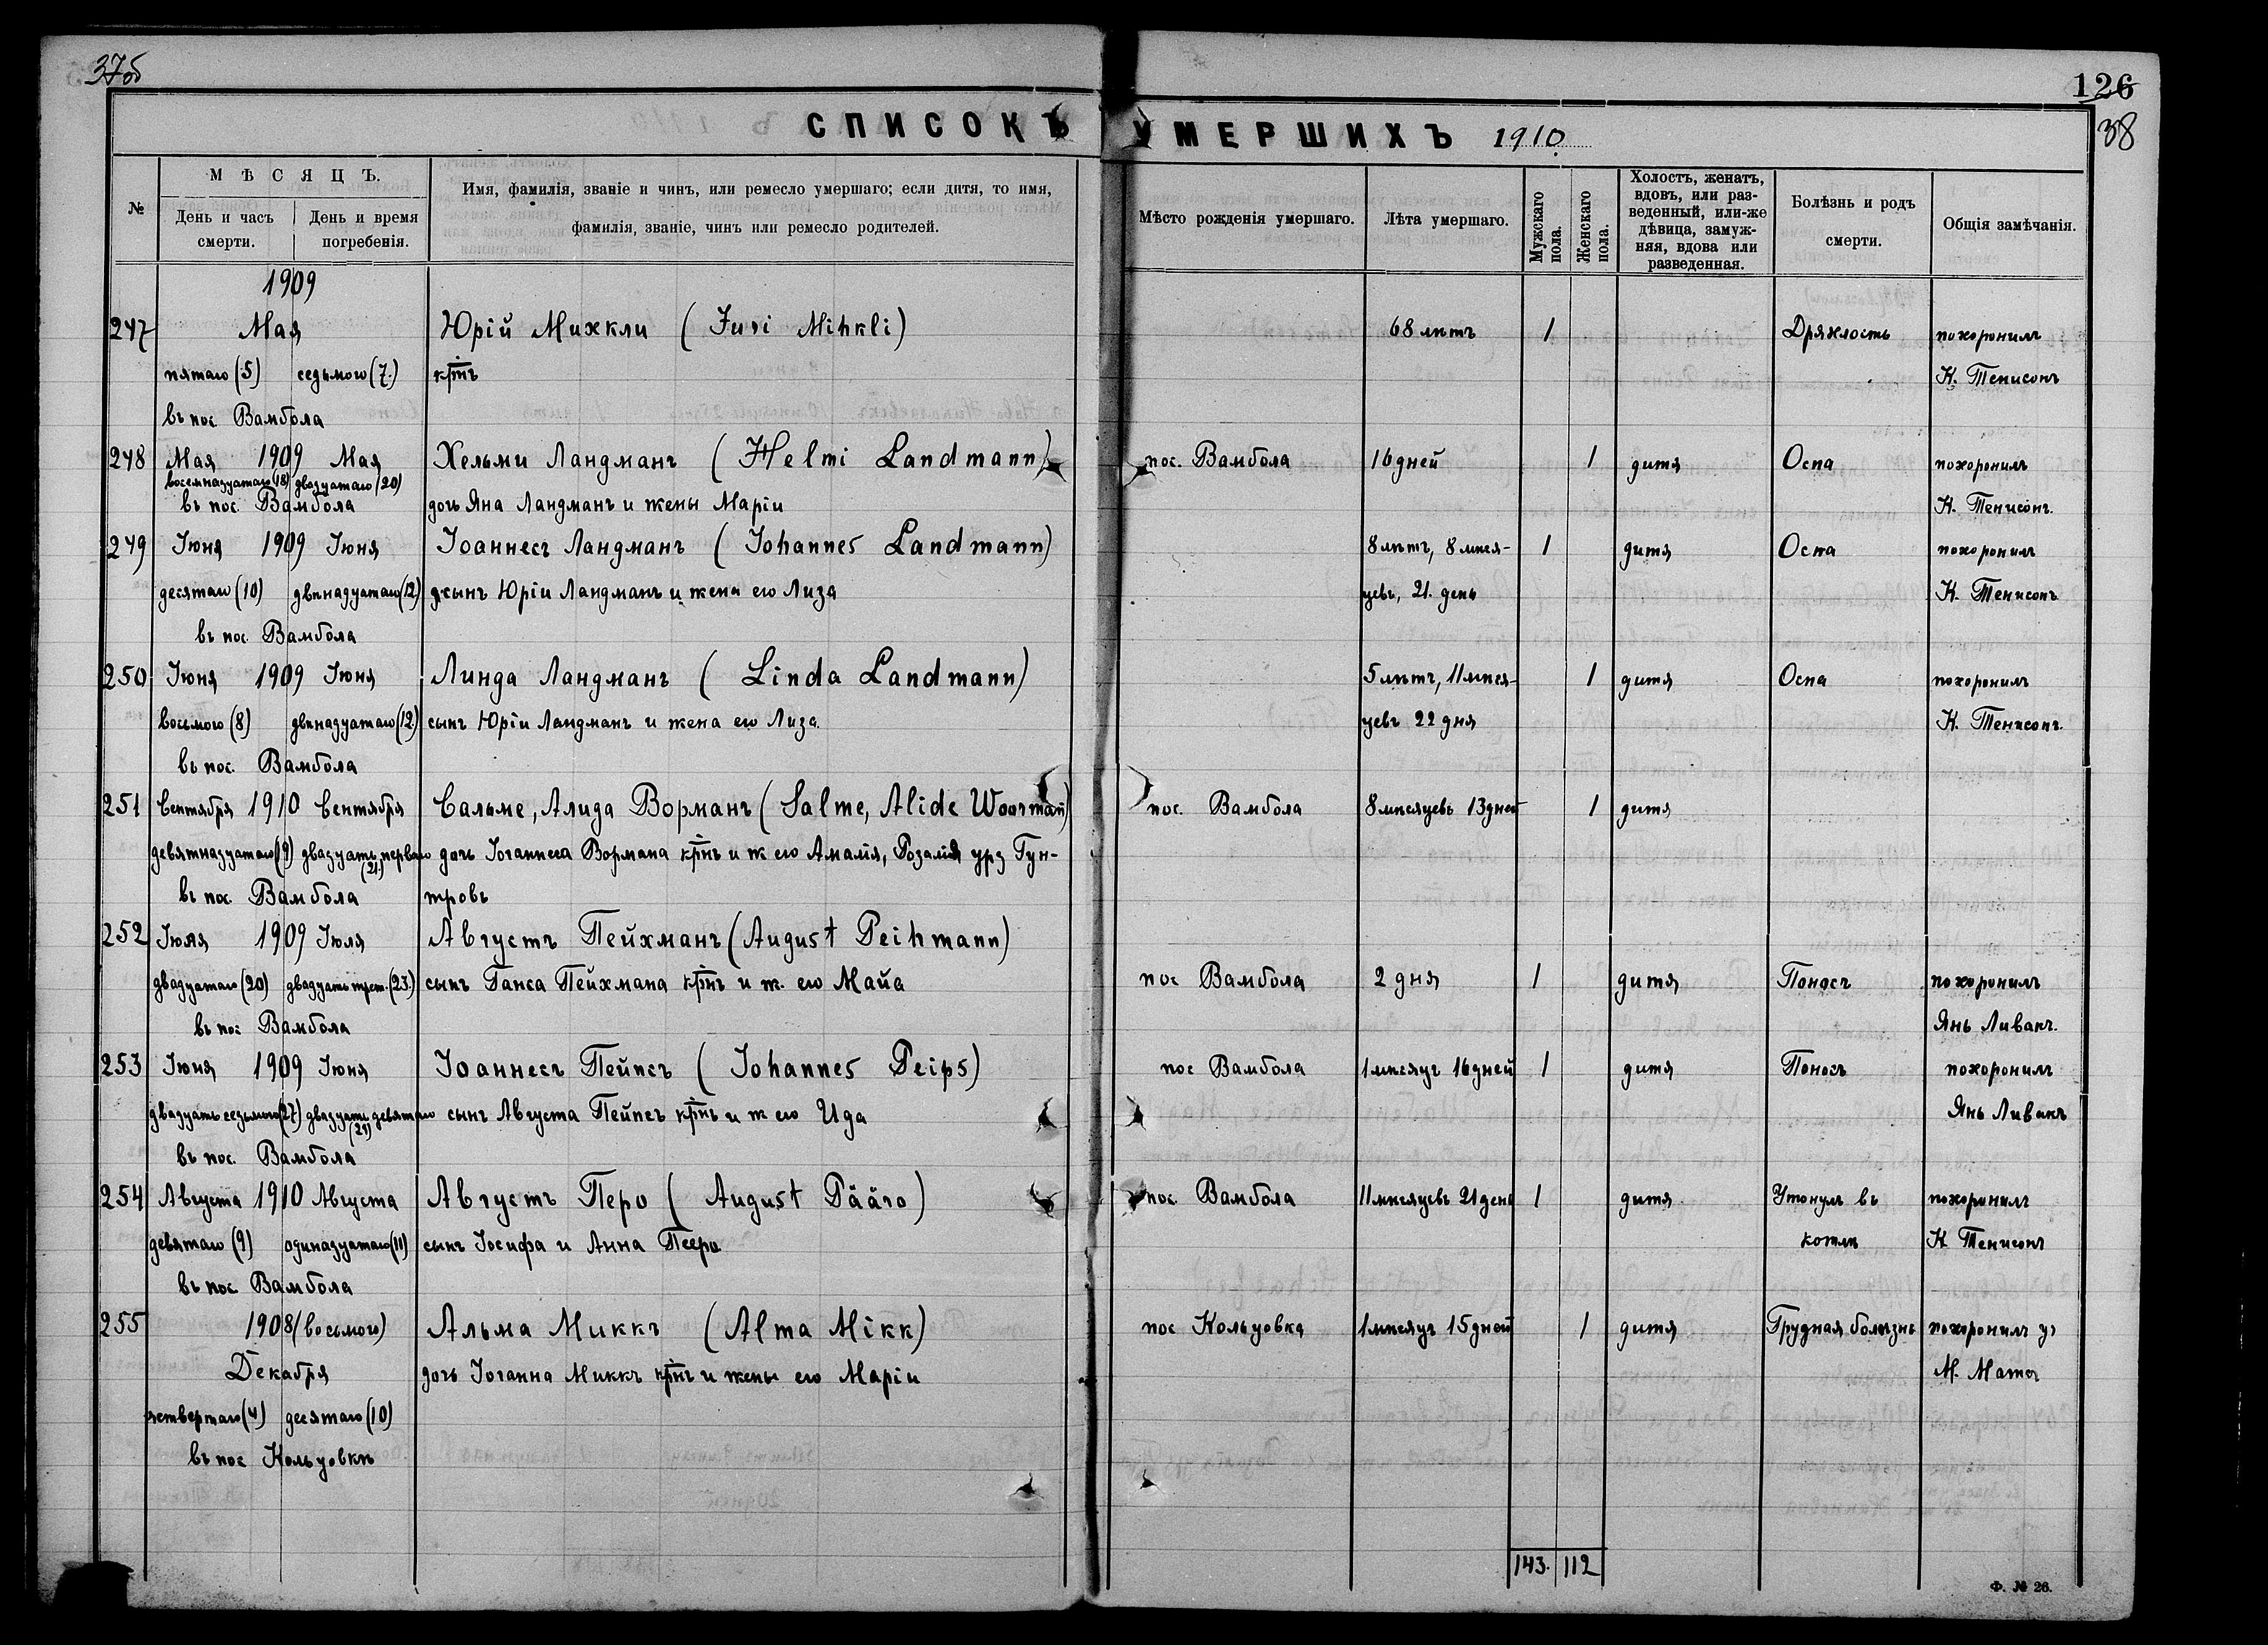 37об
126
38
СПИСОКЪ УМЕРШИХЪ 1910.
№
МѢСЯЦЪ.
День и часъ смерти.
День и время погребенія.
Имя, фамилія, званіе и чинъ, или ремесло умершаго; если дитя, то имя,
фамилія, званіе, чинъ или ремесло родителей.
Мѣсто рожденія умершаго.
Лѣта умершаго.
Мужскаго пола.
Женскаго пола.
Холостъ, женатъ,
вдовъ, или раз-
веденный, или-же
дѣвица, замуж-
няя, вдова или
разведенная.
Болѣзнь и родъ
смерти.
Общія замѣчанія.
1909
247 Мая Юрій Михкли (Juri Mihkli) 68 лѣтъ 1 Дряхлость похоронилъ
пятаго (5) седьмого (7.) кртъ К. Тенисонъ
въ пос. Вамбола
248 Мая 1909 Мая Хельми Ландманъ (Helmi Landmann) пос. Вамбола 16 дней 1 дитя Оспа похоронилъ
восемнадцатаго (18) двадцатаго (20)
въ пос. Вамбола дочь Яна Ландманъ и жены Маріи К. Тенисонъ.
249 Іюня 1909 Іюня Іоаннесъ Ландманъ (Johannes Landmann) 8 лѣтъ, 8 мѣся- 1 дитя Оспа похоронилъ
десятаго (10) двѣнадцатаго (12) сынъ Юріи Ландманъ и жена его Лиза цевъ, 21. день К. Тенисонъ.
въ пос. Вамбола
250 Іюня 1909 Іюня Линда Ландманъ (Linda Landmann) 5 лѣтъ, 11 мѣся- 1 дитя Оспа похоронилъ
восьмого (8) двѣнадцатаго (12) сынъ Юріи Ландманъ и жена его Лиза. цевъ 22 дня К. Тенисонъ.
въ пос. Вамбола
251 Сентября 1910 Сентября Сальме, Алида Ворманъ (Salme, Alide Woorman) пос. Вамбола 8 мѣсяцевъ 13 дней 1 дитя
девятнадцатаго (19) двадцать перваго (21.) дочь Іоганнеса Вормана крнъ и ж его Амалія, Розалія урз Гун-
въ пос. Вамбола тровъ
252 Іюля 1909 Іюля Августъ Пейхманъ (August Peihmann)
двадцатаго (20) двадцать трет. (23.) сынъ Ганса Пейхмана крнъ и ж. его Майа пос Вамбола 2 дня 1 дитя Поносъ похоронилъ
въ пос Вамбола Янъ Ливакъ.
253 Іюня 1909 Іюня Іоаннесъ Пейпсъ (Johannes Peips) пос Вамбола 1 мѣсяцъ 16 дней 1 дитя Поносъ похоронилъ
двадцать седьмого (27) двадцать девятаго (29) сынъ Августа Пейпсъ крнъ и ж его Ида Янъ Ливакъ
въ пос. Вамбола
254 Августа 1910 Августа Августъ Перо (August Pääro) пос. Вамбола 11 мѣсяцевъ 21 день 1 дитя Утонулъ въ похоронилъ
девятаго (9) одинадцатаго (11) сынъ Іосифа и Анна Пееро. котлѣ К Тенисонъ
въ пос Вамбола
255 1908 (восьмого) Альма Миккъ (Alma Mikk) пос Кольцовка 1 мѣсяцъ 15 дней 1 дитя Грудная болѣзнь похоронилъ уз
Декабря дочь Іоганна Миккъ крнъ и жены его Маріи М. Матсъ
четвертаго (4) десятаго (10)
въ пос Кольцовкѣ
143. 112
Ф. № 26.